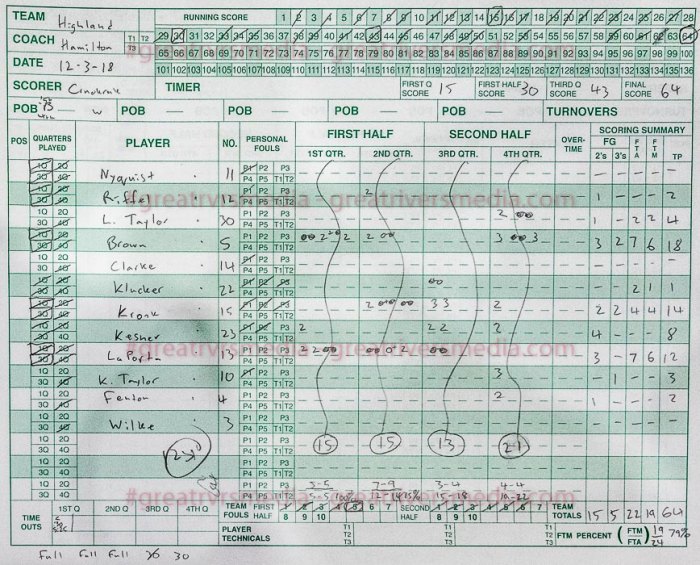 TEAM Highland RUNNING SCORE 1 2 3 4 5 6 7 8 9 10 11 12 13 14 15 16 17 18 19 20 21 22 23 24 25 26 27 28
COACH Hamilton T1 T2 T3 29 30 31 32 33 34 35 36 37 38 39 40 41 42 43 44 45 46 47 48 49 50 51 52 53 54 55 56 57 58 59 60 61 62 63 64
65 66 67 68 69 70 71 72 73 74 75 76 77 78 79 80 81 82 83 84 85 86 87 88 89 90 91 92 93 94 95 96 97 98 99 100
DATE 12-3-18 101 102 103 104 105 106 107 108 109 110 111 112 113 114 115 116 117 118 119 120 121 122 123 124 125 126 127 128 129 130 131 132 133 134 135 136
SCORER TIMER FIRST Q SCORE 15 FIRST HALF SCORE 30 THIRD Q SCORE 43 FINAL SCORE 64
POB W POB POB POB POB TURNOVERS
POS QUARTERS PLAYED PLAYER NO. PERSONAL FOULS FIRST HALF SECOND HALF OVER-TIME SCORING SUMMARY
1ST QTR. 2ND QTR. 3RD QTR. 4TH QTR. FG 2's 3's FTA FTM TP
1Q 2Q 3Q 4Q Nyquist 11 P1 P2 P3 P4 P5 T1 T2 - - - - -
1Q 2Q 3Q 4Q Riffel 12 P1 P2 P3 P4 P5 T1 T2 2 1 - - - 2
1Q 2Q 3Q 4Q L. Taylor 30 P1 P2 P3 P4 P5 T1 T2 2 00 1 - 2 2 4
1Q 2Q 3Q 4Q Brown 5 P1 P2 P3 P4 P5 T1 T2 2 2 00 3 00 3 3 2 7 6 18
1Q 2Q 3Q 4Q Clarke 14 P1 P2 P3 P4 P5 T1 T2 - - - - -
1Q 2Q 3Q 4Q Klucker 22 P1 P2 P3 P4 P5 T1 T2 00 - - 2 1 1
1Q 2Q 3Q 4Q Kronk 15 P1 P2 P3 P4 P5 T1 T2 2 00 00 33 2 2 2 4 4 14
1Q 2Q 3Q 4Q Kesner 23 P1 P2 P3 P4 P5 T1 T2 2 22 2 4 - - - 8
1Q 2Q 3Q 4Q LaPorta 13 P1 P2 P3 P4 P5 T1 T2 2 2 00 00 0 2 00 3 - 7 6 12
1Q 2Q 3Q 4Q K. Taylor 10 P1 P2 P3 P4 P5 T1 T2 3 - 1 - - 3
1Q 2Q 3Q 4Q Fenton 4 P1 P2 P3 P4 P5 T1 T2 2 1 - - - 2
1Q 2Q 3Q 4Q Wilke 3 P1 P2 P3 P4 P5 T1 T2
1Q 2Q 3Q 4Q P1 P2 P3 P4 P5 T1 T2 15 15 13 21
1Q 2Q 3Q 4Q P1 P2 P3 P4 P5 T1 T2
1Q 2Q 3Q 4Q P1 P2 P3 P4 P5 T1 T2 3-5 7-9 3-4 4-4
5-5 100% 15-18 19-22
TIME OUTS 1ST Q 2ND Q 3RD Q 4TH Q TEAM FOULS FIRST HALF 1 2 3 4 5 6 7 8 9 10 SECOND HALF 1 2 3 4 5 6 7 8 9 10 TEAM TOTALS 15 5 22 19 64
PLAYER TECHNICALS T1 T2 T3 T1 T2 T3 FTM PERCENT (FTM/FTA) 19/24 79%
Full Full Full 30 30
#greatriversmedia.com - greatriversmedia.com
#greatriversmedia.com - greatriversmedia.com
#greatrvrsmedia.com - greatriversmedia.com
#greatriversmedia.com - greatriversmedia.com